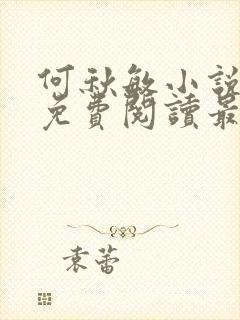 何秋敏小說
免費閱讀最
袁蕾